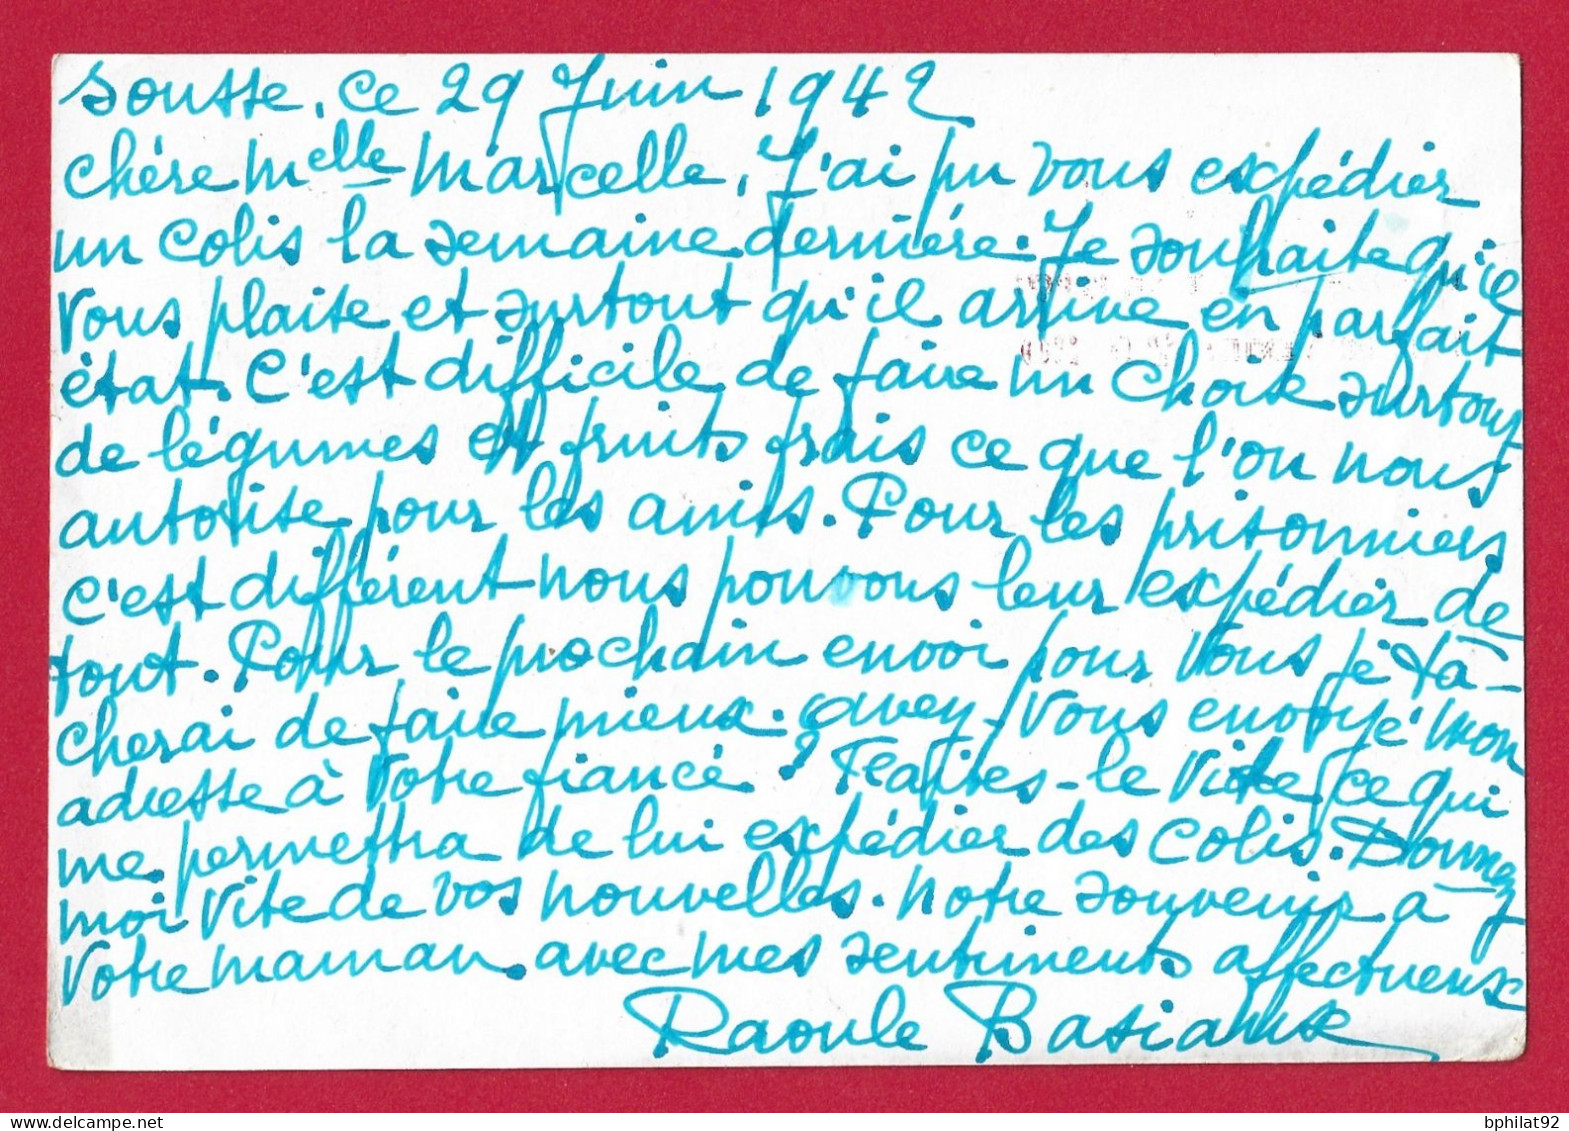 Sousse, ce 29 Juin 1942
Chère Melle Marcelle, J'ai pu vous expédier
un colis la semaine dernière. Je souhaite qu'il
vous plaise et surtout qu'il arrive en parfait
état. C'est difficile de faire un choix surtout
de légumes et fruits frais ce que l'on nous
autorise pour les amis. Pour les prisonniers
c'est différent nous pouvons leur expédier de
tout. Pour le prochain envoi pour vous je tâ-
cherai de faire mieux. avez-vous envoyé mon
adresse à votre fiancé ? Faites-le vite ce qui
me permettra de lui expédier des colis. Donnez
moi vite de vos nouvelles. Notre souvenir à
votre maman. avec mes sentiments affectueux
Raoule
bphilat92